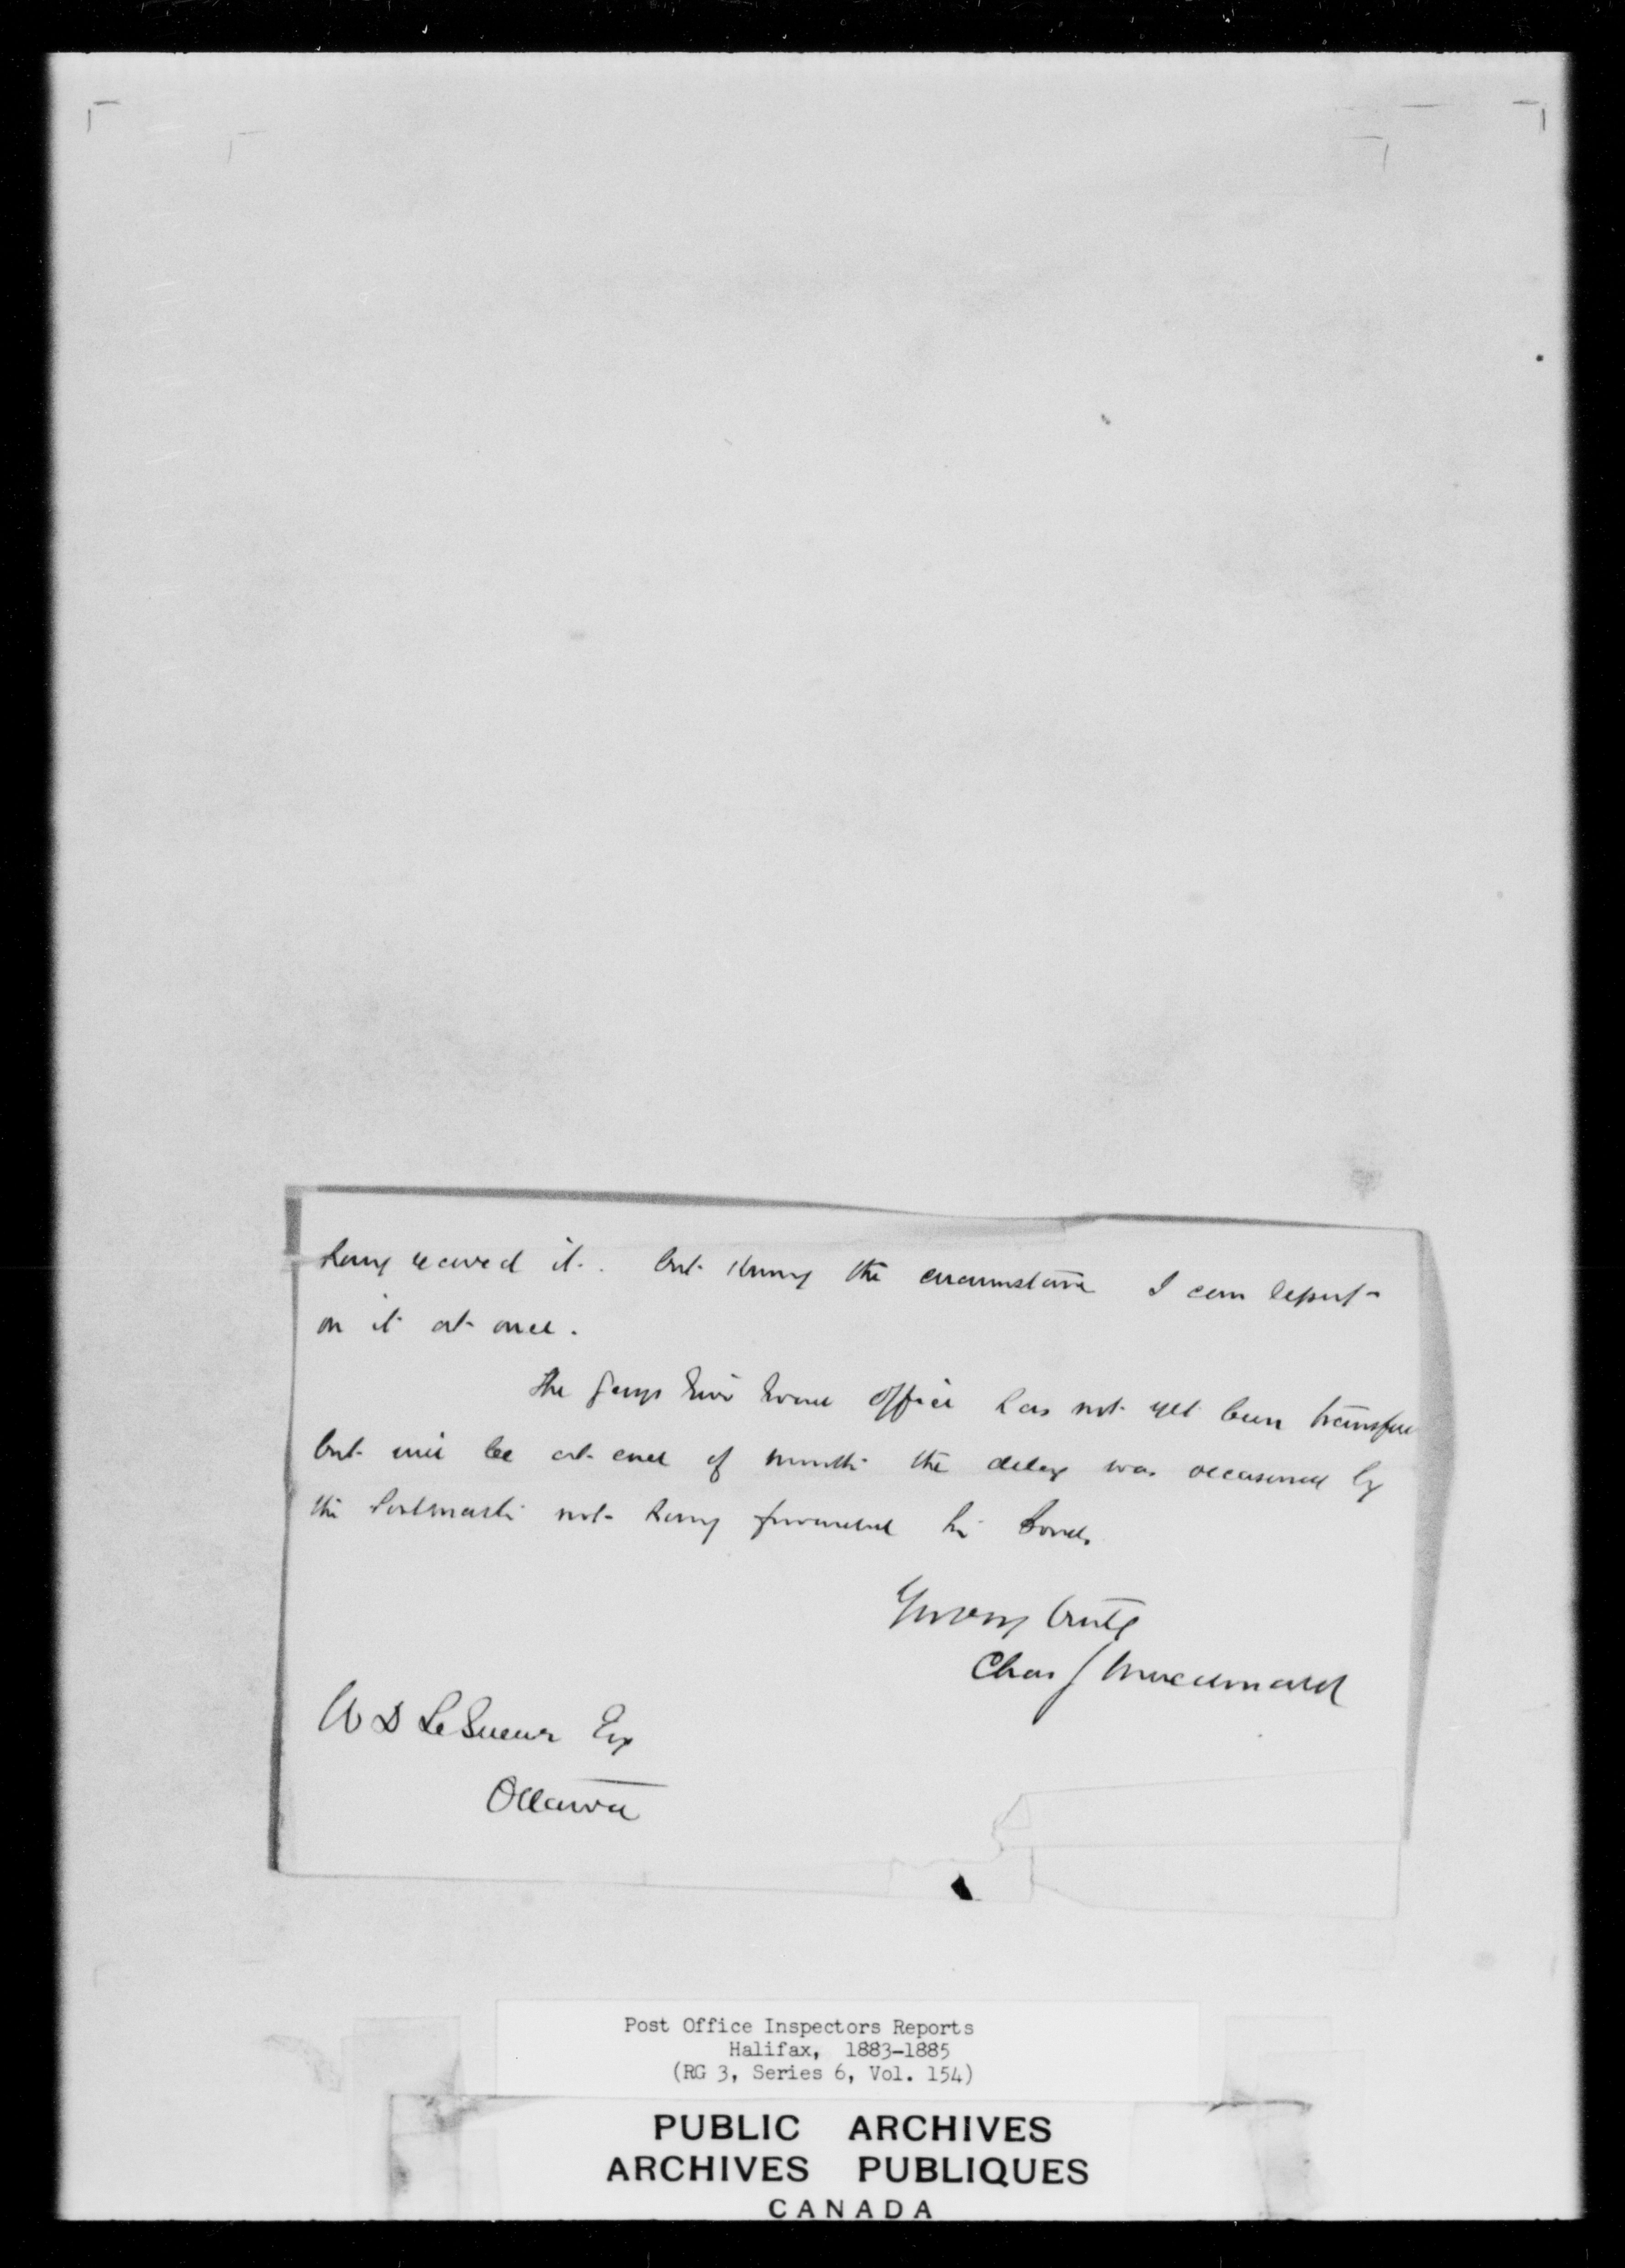 having received it. but knowing the circumstance I can report
on it at once.
The Gays River Road office has not yet been transfer
but will be at end of month the delay was occasioned by
the Postmaster not having furnished his Bonds
Yours very truly
Chas J Macdonald
W D LeSueur Esq
Ottawa
Post Office Inspectors Reports
Halifax, 1883-1885
(RG 3, Series 6, Vol. 154)
PUBLIC ARCHIVES
ARCHIVES PUBLIQUES
CANADA